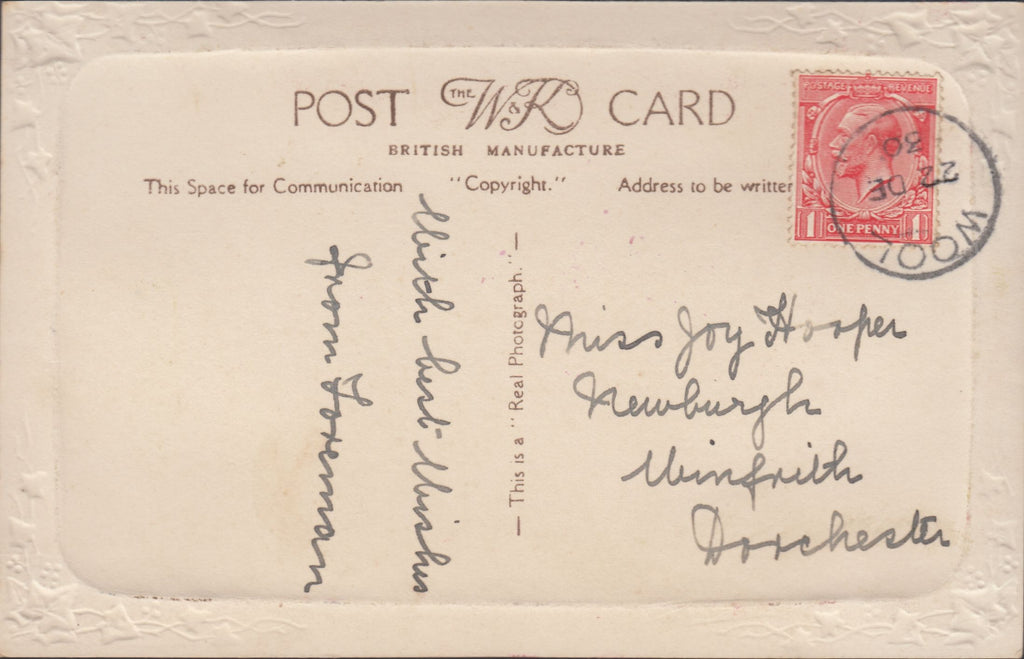 POST THE W&K CARD
BRITISH MANUFACTURE
This Space for Communication "Copyright." Address to be written
POSTAGE REVENUE
1 ONE PENNY 1
WOOL
23 DE
30
With best Wishes
from Foreman
— This is a "Real Photograph." —
Miss Joy Hooper
Newburgh
Winfrith
Dorchester